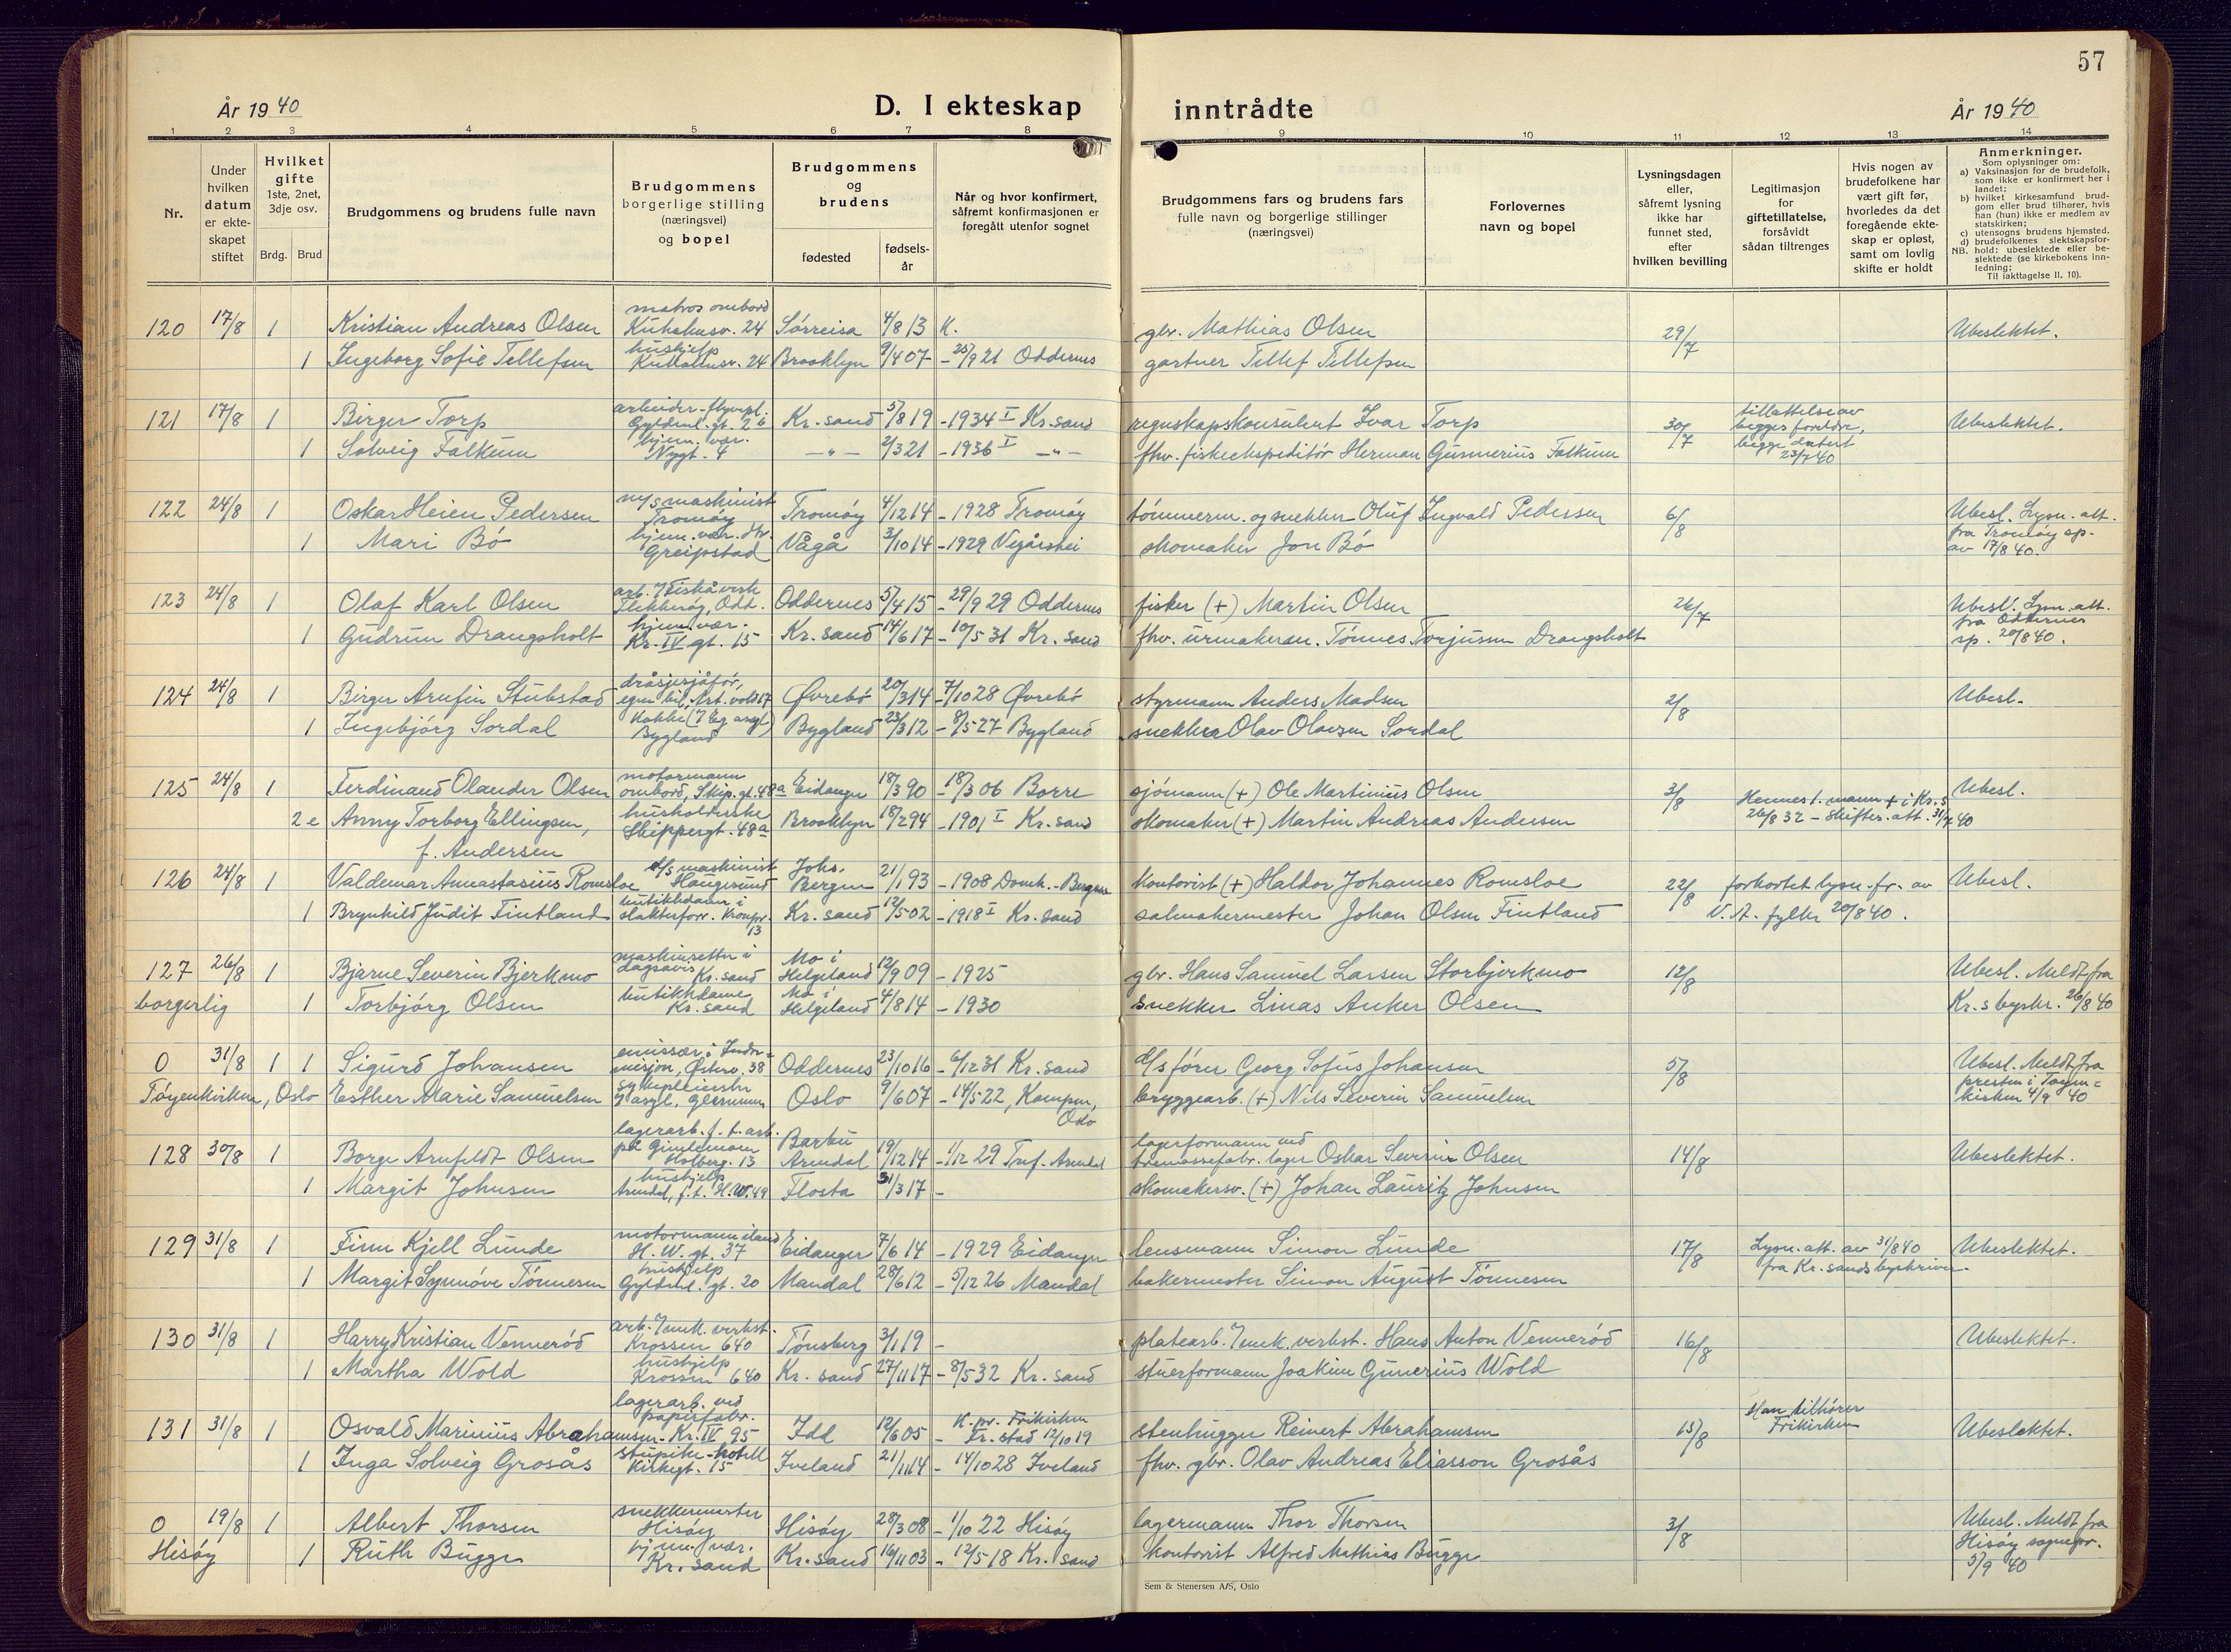 57
År 1940
D. I ekteskap
inntrådte
År 1940
1 2 3 4 5 6 7 8 9 10 11 12 13 14
Nr.
Under hvilken datum er ekte-skapet stiftet
Hvilket gifte 1ste, 2net, 3dje osv.
Brdg. Brud
Brudgommens og brudens fulle navn
Brudgommens borgerlige stilling (næringsvei) og bopel
Brudgommens og brudens
fødested
fødsels-år
Når og hvor konfirmert, såfremt konfirmasjonen er foregått utenfor sognet
Brudgommens fars og brudens fars fulle navn og borgerlige stillinger (næringsvei)
Forlovernes navn og bopel
Lysningsdagen eller, såfremt lysning ikke har funnet sted, efter hvilken bevilling
Legitimasjon for giftetillatelse, forsåvidt sådan tiltrenges
Hvis nogen av brudefolkene har vært gift før, hvorledes da det foregående ekte-skap er opløst, samt om lovlig skifte er holdt
Anmerkninger.
Som oplysninger om:
a) Vaksinasjon for de brudefolk, som ikke er konfirmert her i landet;
b) hvilket kirkesamfund brud-gom eller brud tilhører, hvis han (hun) ikke er medlem av statskirken;
c) utensogns brudens hjemsted.
d) brudefolkenes slektskapsfor-hold: ubeslektede eller be-slektede (se kirkebokens inn-ledning;
NB. Til iakttagelse II. 10).
120 17/8 1 Kristian Andreas Olsen matros ombord Kuholmsv. 24 Sørreisa 4/8 13 K. gbr. Mathias Olsen 29/7 Ubeslektet.
1 Ingeborg Sofie Tellefsen hushjelp Kuholmsv. 24 Brooklyn 9/4 07 - 25/9 21 Oddernes gartner Tellef Tellefsen
121 17/8 1 Birger Torp arbeider - flyvepl. Gyldenl. gt. 2b Kr.sand 5/8 19 - 1934 I Kr.sand regnskapskonsulent Ivar Torp 30/7 tillattelse av begges foreldre, begge datert 23/7 40 Ubeslektet.
1 Solveig Falkum hjem. vær. Nygt. 4 - " - 2/3 21 - 1936 I - " - fhv. fiskeekspeditør Herman Gunnerius Falkum
122 24/8 1 Oskar Heien Pedersen m/s maskinist Tromøy Tromøy 4/12 14 - 1928 Tromøy tømmerm. og snekker Oluf Ingvald Pedersen 6/8 Ubesl. Lysn. att. fra Tromøy sp. av 17/8 40.
1 Mari Bø hjem. vær. Greipstad Vågå 3/10 14 - 1929 Vegårshei skomaker Jon Bø
123 24/8 1 Olaf Karl Olsen arb. v/Fiskåverk Flekkerøy, Odd. Oddernes 5/4 15 - 29/9 29 Oddernes fisker (+) Martin Olsen 26/7 Ubesl. Lysn. att. fra Oddernes sp. 20/8 40.
1 Gudrun Drangsholt hjem. vær. Kr. IV gt. 15 Kr.sand 14/6 17 - 10/5 31 Kr. sand fhv. urmaker Tønnes Torjusen Drangsholt
124 24/8 1 Birger Arnfin Stubstad dråsjesjåfør, egen bil, Art. vold 17 Øvrebø 20/3 14 - 7/10 28 Øvrebø styrmann Anders Madsen 2/8 Ubesl.
1 Ingebjørg Sordal kokke (v/Eg asyl) Bygland Bygland 23/3 12 - 8/5 27 Bygland snekker Olav Olavsen Sordal
125 24/8 1 Ferdinand Olander Olsen motormann ombord, Skip. gt. 48a Eidanger 18/3 90 - 18/3 06 Borre sjømann (+) Ole Martinius Olsen 3/8 Hennes 1. mann + i Kr.s 26/8 32 - skifter. att. 31/7 40 Ubesl.
2 e Anny Torborg Ellingsen, f. Andersen husholderske Skippergt. 48a Brooklyn 18/2 94 - 1901 I Kr.sand skomaker (+) Martin Andreas Andersen
126 24/8 1 Valdemar Annastasius Romsloe d/s maskinist Haugesund Johs. Bergen 21/1 93 - 1908 Domk. - Bergen kontorist (+) Haldor Johannes Romsloe 22/8 forkortet lysn. fr. av V. A. fylke 20/8 40. Ubesl.
1 Brynhild Judit Fintland butikkdame i slakterforr. Kronpr. 13 Kr. sand 12/5 02 - 1918 I Kr. sand salmakermester Johan Olsen Fintland
127 26/8 1 Bjarne Severin Bjerkmo maskinsetter i dagsavis Kr.sand Mo i Helgeland 12/9 09 - 1925 gbr. Hans Samuel Larsen Storbjerkmo 12/8 Ubesl. Meldt fra
borgerlig 1 Torbjørg Olsen butikkdame Kr. sand Mo i Helgeland 4/8 14 - 1930 snekker Linas Anker Olsen Kr.s byskr. 26/8 40
0 31/8 1 1 Sigurd Johansen emissær i Indre-misjon, Østerv. 38 Oddernes 23/10 16 - 6/12 31 Kr. sand d/s fører Georg Sofus Johansen 5/8 Ubesl. Meldt fra presten i Tøyen-kirken 4/9 40
Tøyenkirken, Oslo Esther Marie Samuelsen sykepleierske v/asyl, Oslo 9/6 07 - 14/5 22, Kampen, Oslo bryggearb. (+) Nils Severin Samuelsen
128 30/8 1 Borge Arnfeldt Olsen lagerarb. f. t. arb. på Gimlemoen Kolberg. 13 Barbu Arendal 19/12 14 - 1/12 29 Tref. - Arendal lagerformann ved tremassefabr. lager Oskar Severin Olsen 14/8 Ubeslektet.
1 Margit Johnsen hushjelp Arendal, f. t. H.W. 49 Flosta 31/3 17 - skomakersv. (+) Johan Lauritz Johnsen
129 31/8 1 Finn Kjell Lunde motormann iland H. W. gt. 37 Eidanger 7/6 14 - 1929 Eidanger lensmann Simon Lunde 17/8 Lysn. att. av 31/8 40 fra Kr. sands byskriver. Ubeslektet.
1 Margit Synnøve Tønnesen hushjelp Gyldenl. gt. 20 Mandal 28/6 12 - 5/12 26 Mandal bakermester Simon August Tønnesen
130 31/8 1 Harry Kristian Vennerød arb. v/mek. verkst. Krossen 640 Tønsberg 3/1 19 - platearb. v/mek. verkst. Hans Anton Vennerød 16/8 Ubeslektet.
1 Martha Wold hushjelp Krossen 640 Kr. sand 27/11 17 - 8/5 32 Kr. sand stuerformann Joakim Gunerius Wold
131 31/8 1 Osvald Marinius Abrahamsen lagerarb. ved papirfabr. Kr. IV 95 Idd 12/6 05 - K. pr. Frikirken Fr. stad 12/10 19 stenhugger Reinert Abrahamsen 15/8 Han tilhører Frikirken Ubeslektet.
1 Inga Solveig Grosås stuepike - hotell Kirkegt. 15 Iveland 21/11 14 - 14/10 28 Iveland fhv. gbr. Olav Andreas Eliasson Grosås
0 19/8 1 Albert Thorsen snekkermester Hisøy Hisøy 28/3 08 - 1/10 22 Hisøy lagermann Thor Thorsen 3/8 Ubesl. Meldt fra
Hisøy 1 Ruth Bugge hjem. vær. Kr. sand Kr. sand 16/11 03 - 12/5 18 Kr. sand kontorist Alfred Mathias Bugge Hisøy sognepr. 5/9 40
Sem & Stenersen A/S, Oslo